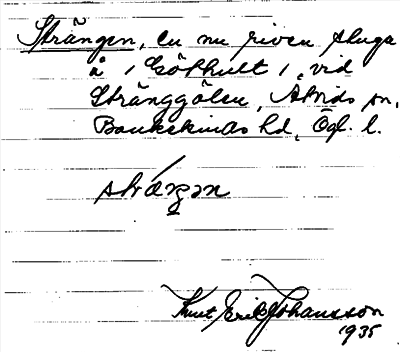 Strängen, en nu riven stuga
å / Göthult /, vid
Stränggölen, Atvids sn,
Bankekinds hd, Ögl. l.
strángən
Knut Erik Johansson
1935